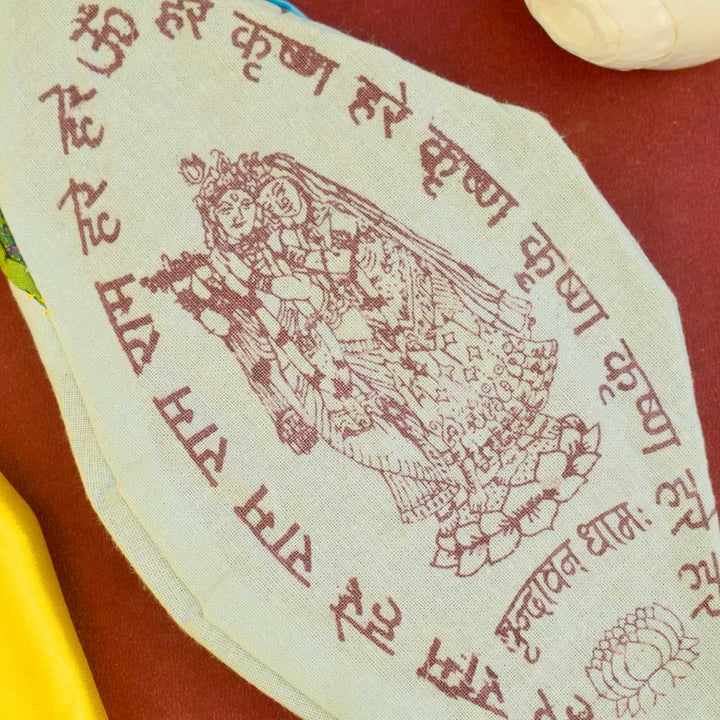 ॐ हरे कृष्ण हरे कृष्ण कृष्ण कृष्ण हरे हरे
राम हरे राम राम राम हरे हरे
वृन्दावन धामः